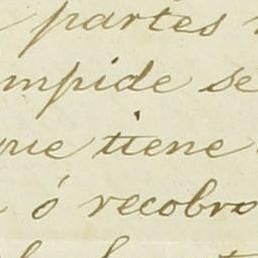 partes
mpide se
que tiene
ó recobro